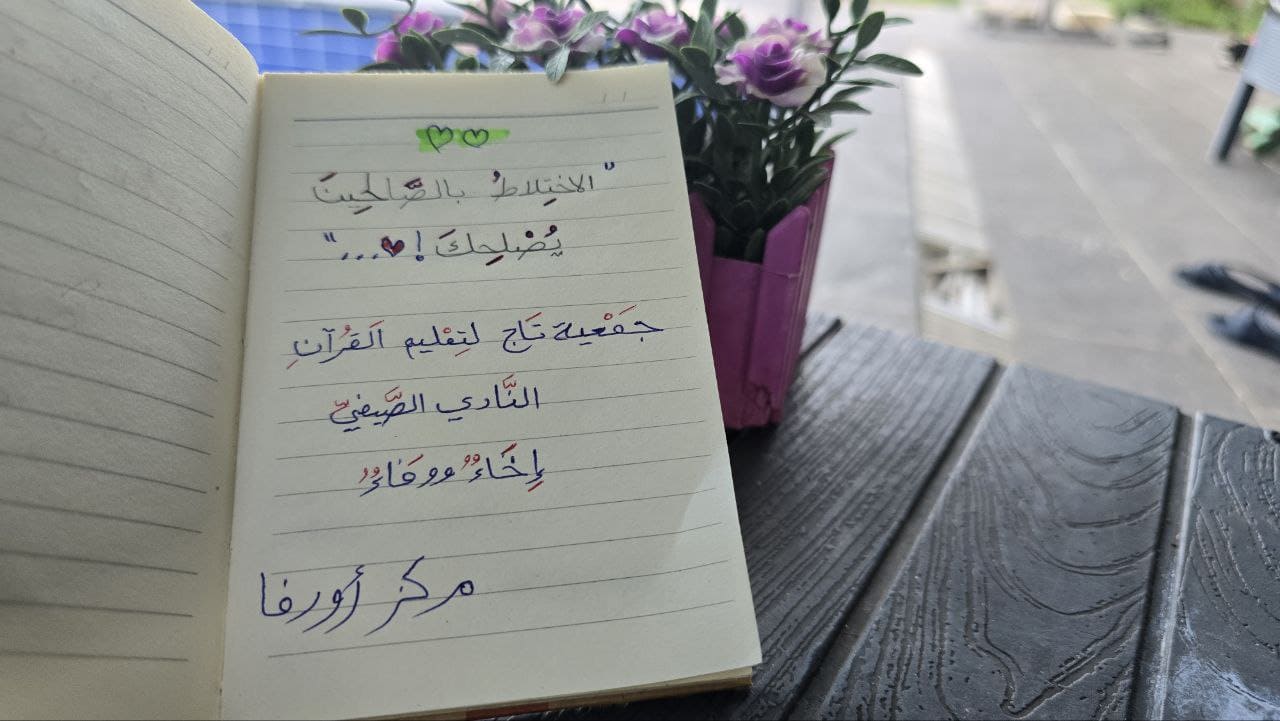 "الاختِلاطُ بالصَّالحِينَ
يُصْلِحكَ!❤..."
جَمْعية تَاج لتِعْليم القُرْآنِ
النَّادي الصَّيفيّ
إِخَاءٌ ووفَاءٌ
مركز أورفا